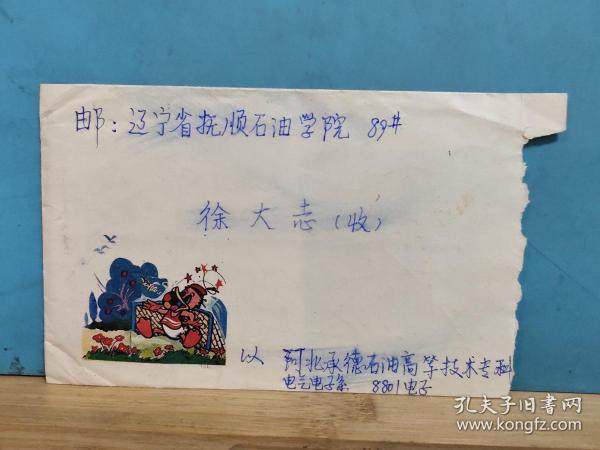 邮：辽宁省抚顺石油学院 89#
徐大志（收）
以 河北承德石油高等技术专科
电气电子系 8801电子
孔夫子旧书网
www.kongfz.com